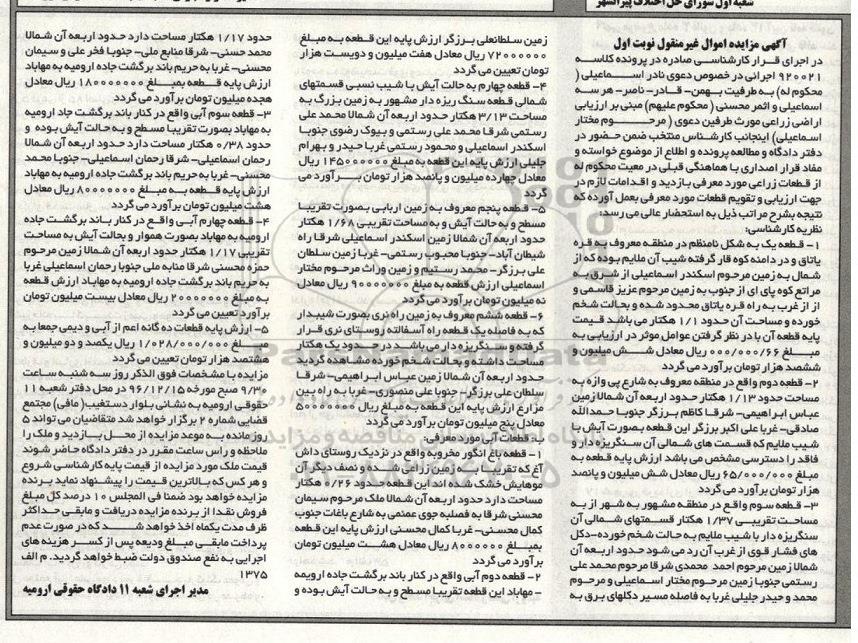 شعبه اول شورای حل اختلاف پیرانشهر
آگهی مزایده اموال غیرمنقول نوبت اول
در اجرای قرار کارشناسی صادره در پرونده کلاسه
۹۲۰۰۲۱ اجرائی در خصوص دعوی نادر اسماعیلی (
محکوم له) به طرفیت بهمن- قادر- ناصر- هر سه
اسماعیلی و اثمر محسنی ( محکوم علیهم) مبنی بر ارزیابی
اراضی زراعی مورث طرفین دعوی ( مرحوم مختار
اسماعیلی) اینجانب کارشناس منتخب ضمن حضور در
دفتر دادگاه و مطالعه پرونده و اطلاع از موضوع خواسته و
مفاد قرار اصداری با هماهنگی قبلی در معیت محکوم له
از قطعات زراعی مورد معرفی بازدید و اقدامات لازم در
جهت ارزیابی و تقویم قطعات مورد معرفی بعمل آورده که
نتیجه بشرح مراتب ذیل به استحضار عالی می رسد:
نظریه کارشناسی:
۱- قطعه یک به شکل نامنظم در منطقه معروف به قره
یاتاق و در دامنه کوه قار گرفته شیب آن ملایم بوده که از
شمال به زمین مرحوم اسکندر اسماعیلی از شرق به
مراتع کوه پای ای از جنوب به زمین مرحوم عزیز قاسمی و
از از غرب به راه قره یاتاق محدود شده و بحالت شخم
خورده و مساحت آن حدود ۱/۱ هکتار می باشد قیمت
پایه قطعه آن با در نظر گرفتن عوامل موثر در ارزیابی به
مبلغ ۰۰۰/۰۰۰/۶۶ ریال معادل شش میلیون و
ششصد هزار تومان برآورد می گردد
۲- قطعه دوم واقع در منطقه معروف به شارع پی وازه به
مساحت حدود ۱/۱۳ هکتار حدود اربعه آن شمالا زمین
عباس ابراهیمی- شرقا کاظم برزگر جنوبا حمدالله
صادقی- غربا علی اکبر برزگر این قطعه بصورت آیش با
شیب ملایم که قسمت های شمالی آن سنگریزه دار و
فاقد را دسترسی مشخص می باشد ارزش پایه قطعه به
مبلغ ۶۵/۰۰۰/۰۰۰ ریال معادل شش میلیون و پانصد
هزار تومان برآورد می گردد
۳- قطعه سوم واقع در منطقه مشهور به شهر از به
مساحت تقریبی ۱/۳۷ هکتار قسمتهای شمالی آن
سنگریزه دار با شیب ملایم به حالت شخم خورده-دکل
های فشار قوی از غرب آن رد می شود حدود اربعه آن
شمالا زمین مرحوم احمد محمدی شرقا مرحوم محمد علی
رستمی جنوبا زمین مرحوم مختار اسماعیلی و مرحوم
محمد و حیدر جلیلی غربا به فاصله مسیر دکلهای برق به
زمین سلطانعلی برزگر ارزش پایه این قطعه به مبلغ
۷۲۰۰۰۰۰۰ ریال معادل هفت میلیون و دویست هزار
تومان تعیین می گردد
۴- قطعه چهارم به حالت آیش با شیب نسبی قسمتهای
شمالی قطعه سنگ ریزه دار مشهور به زمین بزرگ به
مساحت ۳/۱۳ هکتار حدود اربعه آن شمالا محمد علی
رستمی شرقا محمد علی رستمی و بیوک رضوی جنوبا
اسکندر اسماعیلی و محمود رستمی غربا حیدر و بهرام
جلیلی ارزش پایه این قطعه به مبلغ ۱۴۵۰۰۰۰۰۰ ریال
معادل چهارده میلیون و پانصد هزار تومان برآورد می
گردد
۵- قطعه پنجم معروف به زمین اربابی بصورت تقریبا
مسطح و به حالت آیش و به مساحت تقریبی ۱/۶۸ هکتار
حدود اربعه آن شمالا زمین اسکندر اسماعیلی شرقا راه
شیطان آباد- جنوبا محبوب رستمی- غربا زمین سلطان
علی برزگر- محمد رستیم و زمین وراث مرحوم مختار
اسماعیلی ارزش قطعه به مبلغ ۹۰۰۰۰۰۰۰ ریال معادل
نه میلیون تومان برآورد می گردد
۶- قطعه ششم معروف به زمین راه نری بصورت شیبدار
که به فاصله یک قطعه راه آسفالته روستای نری قرار
گرفته و سنگریزه دار می باشد در حدود یک هکتار
مساحت داشته و بحالت شخم خورده مشاهده گردید
حدود اربعه آن شمالا زمین عباس ابراهیمی- شرقا
سلطان علی برزگر- جنوبا علی منصوری- غربا به راه بین
مزارع ارزش پایه این قطعه به مبلغ ریال ۵۰۰۰۰۰۰۰
معادل پنج میلیون تومان برآورد می گردد
ب- قطعات آبی مورد معرفی:
۱- قطعه باغ انگور مخروبه واقع در نزدیک روستای داش
آغ که تقریبا به زمین زراعی شده و نصف دیگر آن
موهایش خشک شده اند این قطعه حدود ۰/۲۶ هکتار
مساحت دارد حدود اربعه آن شمالا ملک مرحوم سیمان
محسنی شرقا به فصلبه جوی عمنمی به شارع باغات جنوب
کمال محسنی- غربا کمال محسنی ارزش پایه این قطعه
بمبلغ ۸۰۰۰۰۰۰ ریال معادل هشت میلیون تومان
برآورد می گردد
۲- قطعه دوم آبی واقع در کنار باند برگشت جاده ارویمه
- مهاباد این قطعه تقریبا مسطح و به حالت آیش بوده و
حدود ۱/۱۷ هکتار مساحت دارد حدود اربعه آن شمالا
محمد حسنی- شرقا منابع ملی- جنوبا فخر علی و سیمان
محسنی- غربا به حریم باند برگشت جاده ارومیه به مهاباد
ارزش پایه قطعه بمبلغ ۱۸۰۰۰۰۰۰۰ ریال معادل
هجده میلیون تومان برآورد می گردد
۳- قطعه سوم آبی واقع در کنار باند برگشت جاد ارومیه
به مهاباد بصورت تقریبا مسطح و به حالت آیش بوده و
حدود ۰/۳۸ هکتار مساحت دارد حدود اربعه آن شمالا
رحمان اسماعیلی- شرقا رحمان اسماعیلی- جنوبا محمد
محسنی- غربا به حریم باند برگشت جاده ارومیه به مهاباد
ارزش پایه قطعه به مبلغ ۸۰۰۰۰۰۰۰ ریال معادل
هشت میلیون تومان برآورد می گردد
۴- قطعه چهارم آبی واقع در کنار باند برگشت جاده
ارومیه به مهاباد بصورت هموار و بحالت آیش به مساحت
تقریبی ۱/۱۷ هکتار حدود اربعه آن شمالا زمین مرحوم
حمزه محسنی شرقا منابه ملی جنوبا رحمان اسماعیلی غربا
به حریم باند برگشت جاده ارومیه به مهاباد ارزش قطعه
به مبلغ ۲۰۰۰۰۰۰۰ ریال معادل بیست میلیون تومان
برآورد تعیین می گردد
۵- ارزش پایه قطعات ده گانه اعم از آبی و دیمی جمعا به
مبلغ ۱/۰۲۸/۰۰۰/۰۰۰ ریال یکصد و دو میلیون و
هشتصد هزار تومان تعیین می گردد
مزایده با مشخصات فوق الذکر روز سه شنبه ساعت
۹/۳۰ صبح مورخه ۹۶/۱۲/۱۵ در محل دفتر شعبه ۱۱
حقوقی ارومیه به نشانی بلوار دستغیب( مافی) مجتمع
قضایی شماره ۲ برگزار خواهد شد متقاضیان می تواند ۵
روز مانده به موعد مزایده از محل بازدید و ملک را
ملاحظه و راس ساعت مقرر در دفتر دادگاه حاضر شوند
قیمت ملک مورد مزایده از قیمت پایه کارشناسی شروع
و هر کس که بالاترین قیمت را پیشنهاد نماید برنده
مزایده خواهد بود ضمنا فی المجلس ۱۰ درصد کل مبلغ
فروش نقدا از برنده مزایده دریافت و مابقی حداکثر
ظرف مدت یکماه اخذ خواهد شد که در صورت عدم
پرداخت مابقی مبلغ ودیعه پس از کسر هزینه های
اجرایی به نفع صندوق دولت ضبط خواهد گردید. م الف
۱۳۷۵
مدیر اجرای شعبه ۱۱ دادگاه حقوقی ارومیه